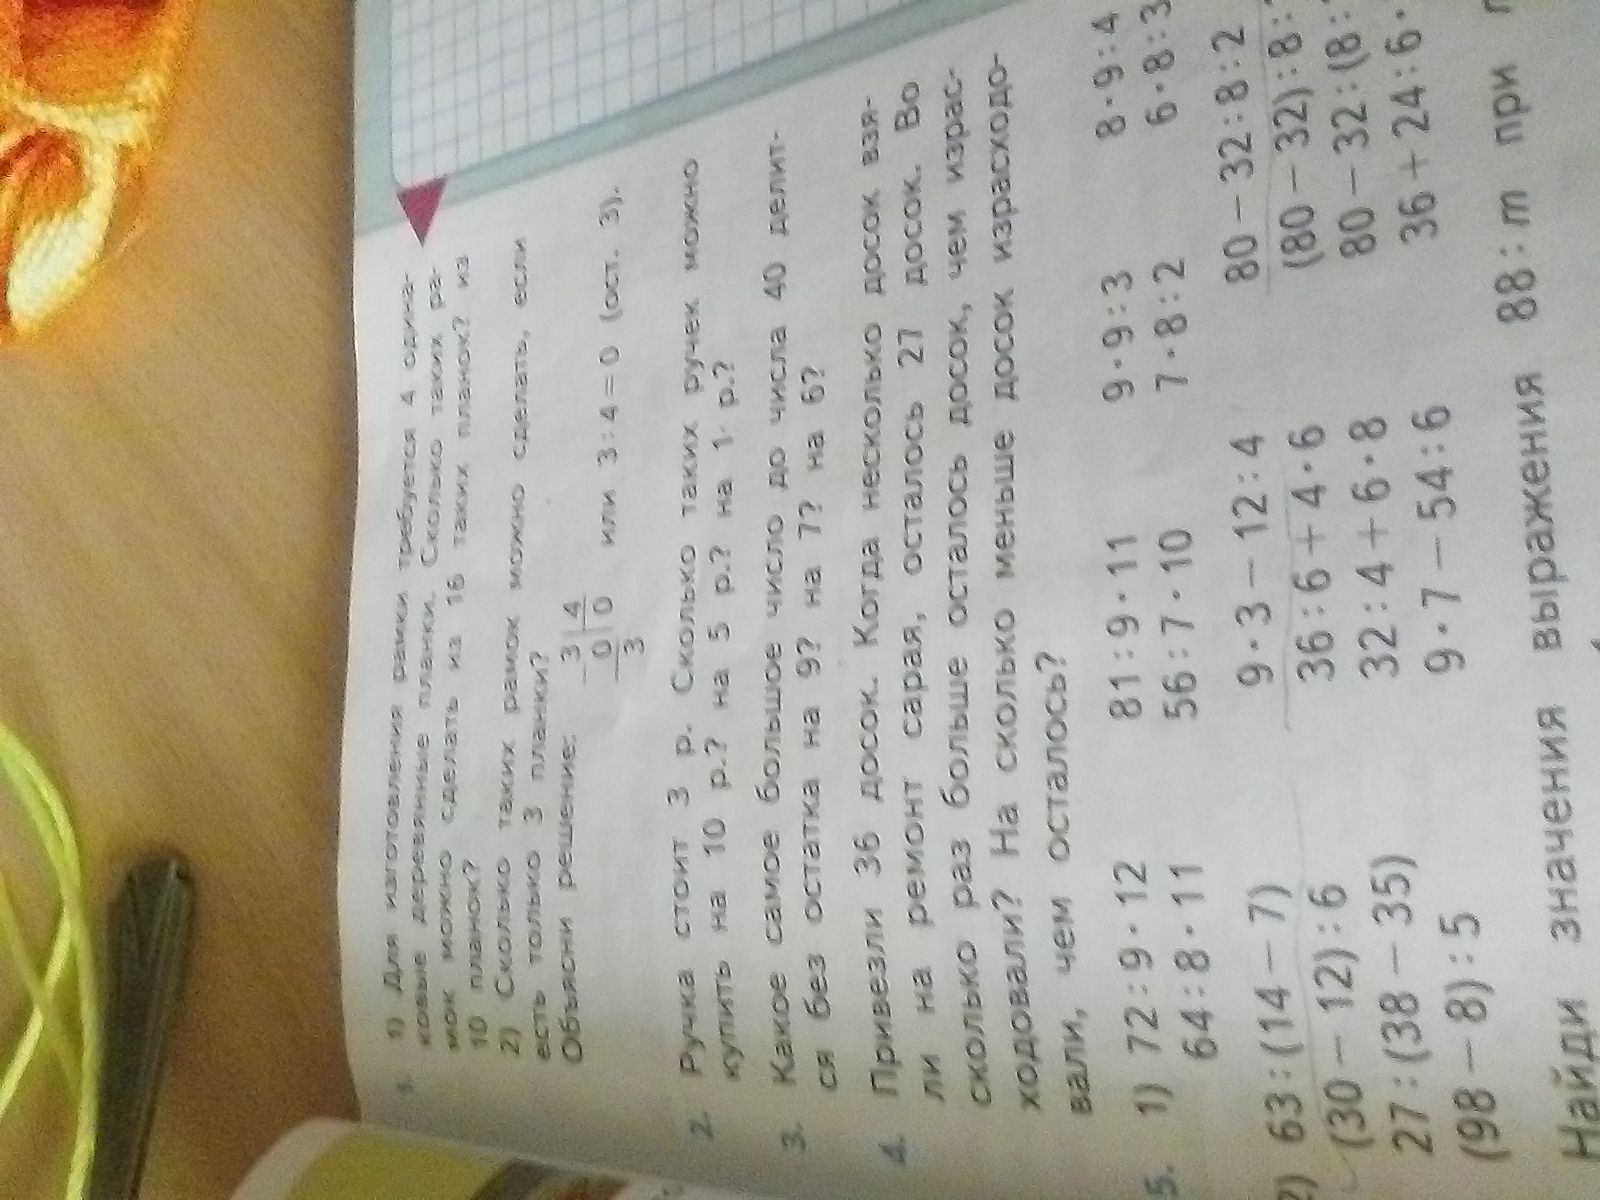 1. 1) Для изготовления рамки требуется 4 одина-
ковые деревянные планки. Сколько таких ра-
мок можно сделать из 16 таких планок? из
10 планок?
2) Сколько таких рамок можно сделать, если
есть только 3 планки?
Объясни решение: 3 | 4 или 3 : 4 = 0 (ост. 3).
0 | 0
3
2. Ручка стоит 3 р. Сколько таких ручек можно
купить на 10 р.? на 5 р.? на 1 р.?
3. Какое самое большое число до числа 40 делит-
ся без остатка на 9? на 7? на 6?
4. Привезли 36 досок. Когда несколько досок взя-
ли на ремонт сарая, осталось 27 досок. Во
сколько раз больше осталось досок, чем израс-
ходовали? На сколько меньше досок израсходо-
вали, чем осталось?
5. 1) 72 : 9 · 12 81 : 9 · 11 9 · 9 : 3 8 · 9 : 4
64 : 8 · 11 56 : 7 · 10 7 · 8 : 2 6 · 8 : 3
2) 63 : (14 − 7) 9 · 3 − 12 : 4 80 − 32 : 8 : 2
(30 − 12) : 6 36 : 6 + 4 · 6 (80 − 32) : 8 :
27 : (38 − 35) 32 : 4 + 6 · 8 80 − 32 : (8 :
(98 − 8) : 5 9 · 7 − 54 : 6 36 + 24 : 6 ·
Найди значения выражения 88 : m при